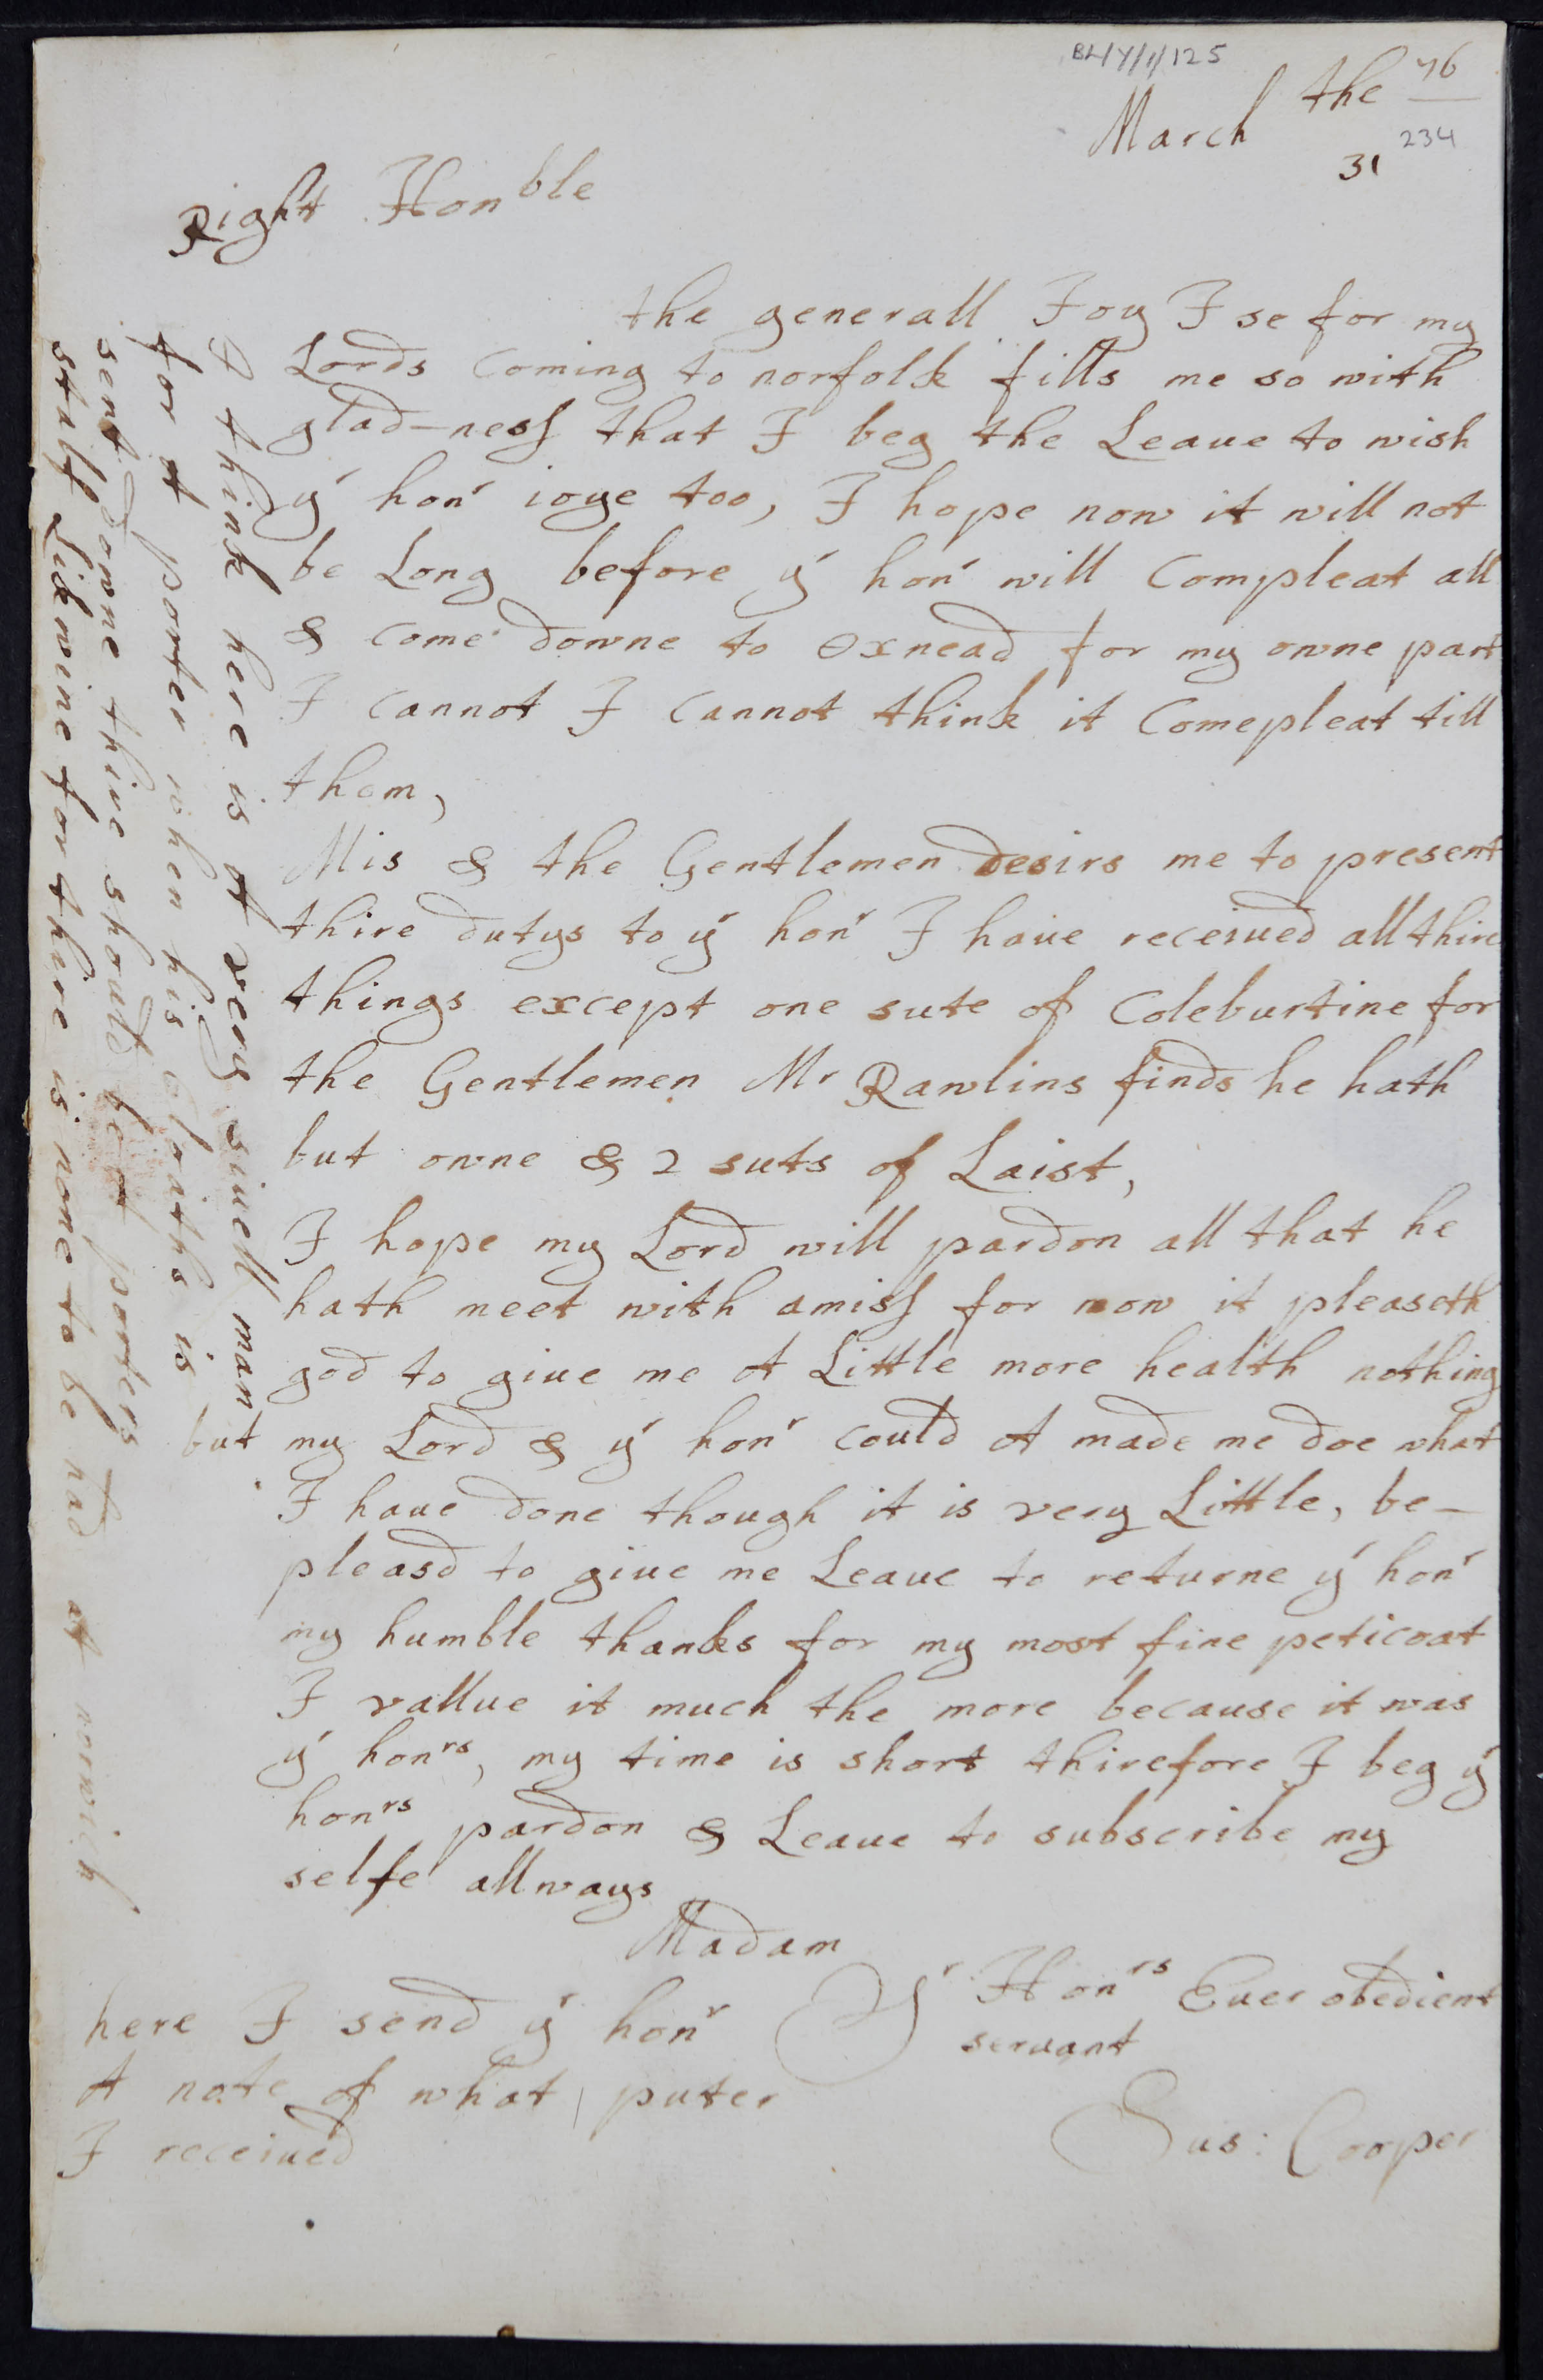 BL/Y/1/125
March the 76
31
234
Right Honble
the generall Joy I se for my
Lords Coming to norfolk fills me so with
glad-ness that I beg the Leaue to wish
yr honr ioye too, I hope now it will not
be Long before yr honr will Compleat all
& come downe to oxnead for my owne part
I cannot I cannot think it Comepleat till
them,
Mis & the Gentlemen desirs me to present
thire dutys to yr honr I haue receiued all thire
things except one sute of Coleburtine for
the Gentlemen Mr Rawlins finds he hath
but owne & 2 suts of Laist,
I hope my Lord will pardon all that he
hath meet with amiss for now it pleaseth
god to giue me A Little more health nothing
but my Lord & yr honr could A made me doe what
I haue done though it is very Little, be-
pleasd to giue me Leaue to returne yr honr
my humble thanks for my most fine peticoat
I vallue it much the more because it was
yr honrs, my time is short thirefore I beg yr
honrs pardon & Leaue to subscribe my
selfe allways
Madam
Yr Honrs Euer obedient
servant
Sus: Cooper
here I send yr honr
A note of what puter
I receiued
I think here is A very siuell man
for A porter when his Cloaths is
sent downe thire should be A porters
stalf Likwine for thire is none to be had at norwich